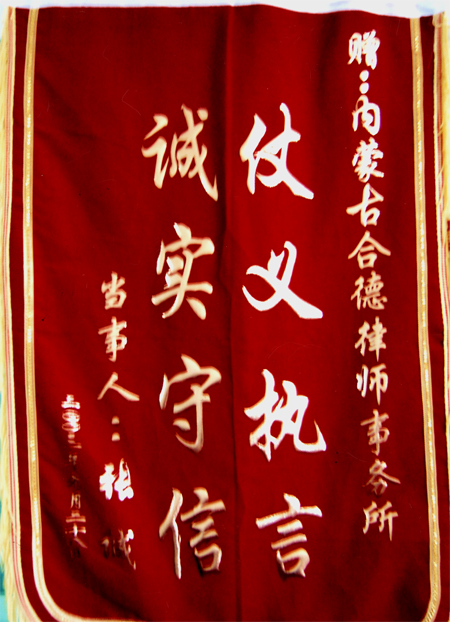 赠：内蒙古合德律师事务所
仗义执言
诚实守信
当事人：张诚